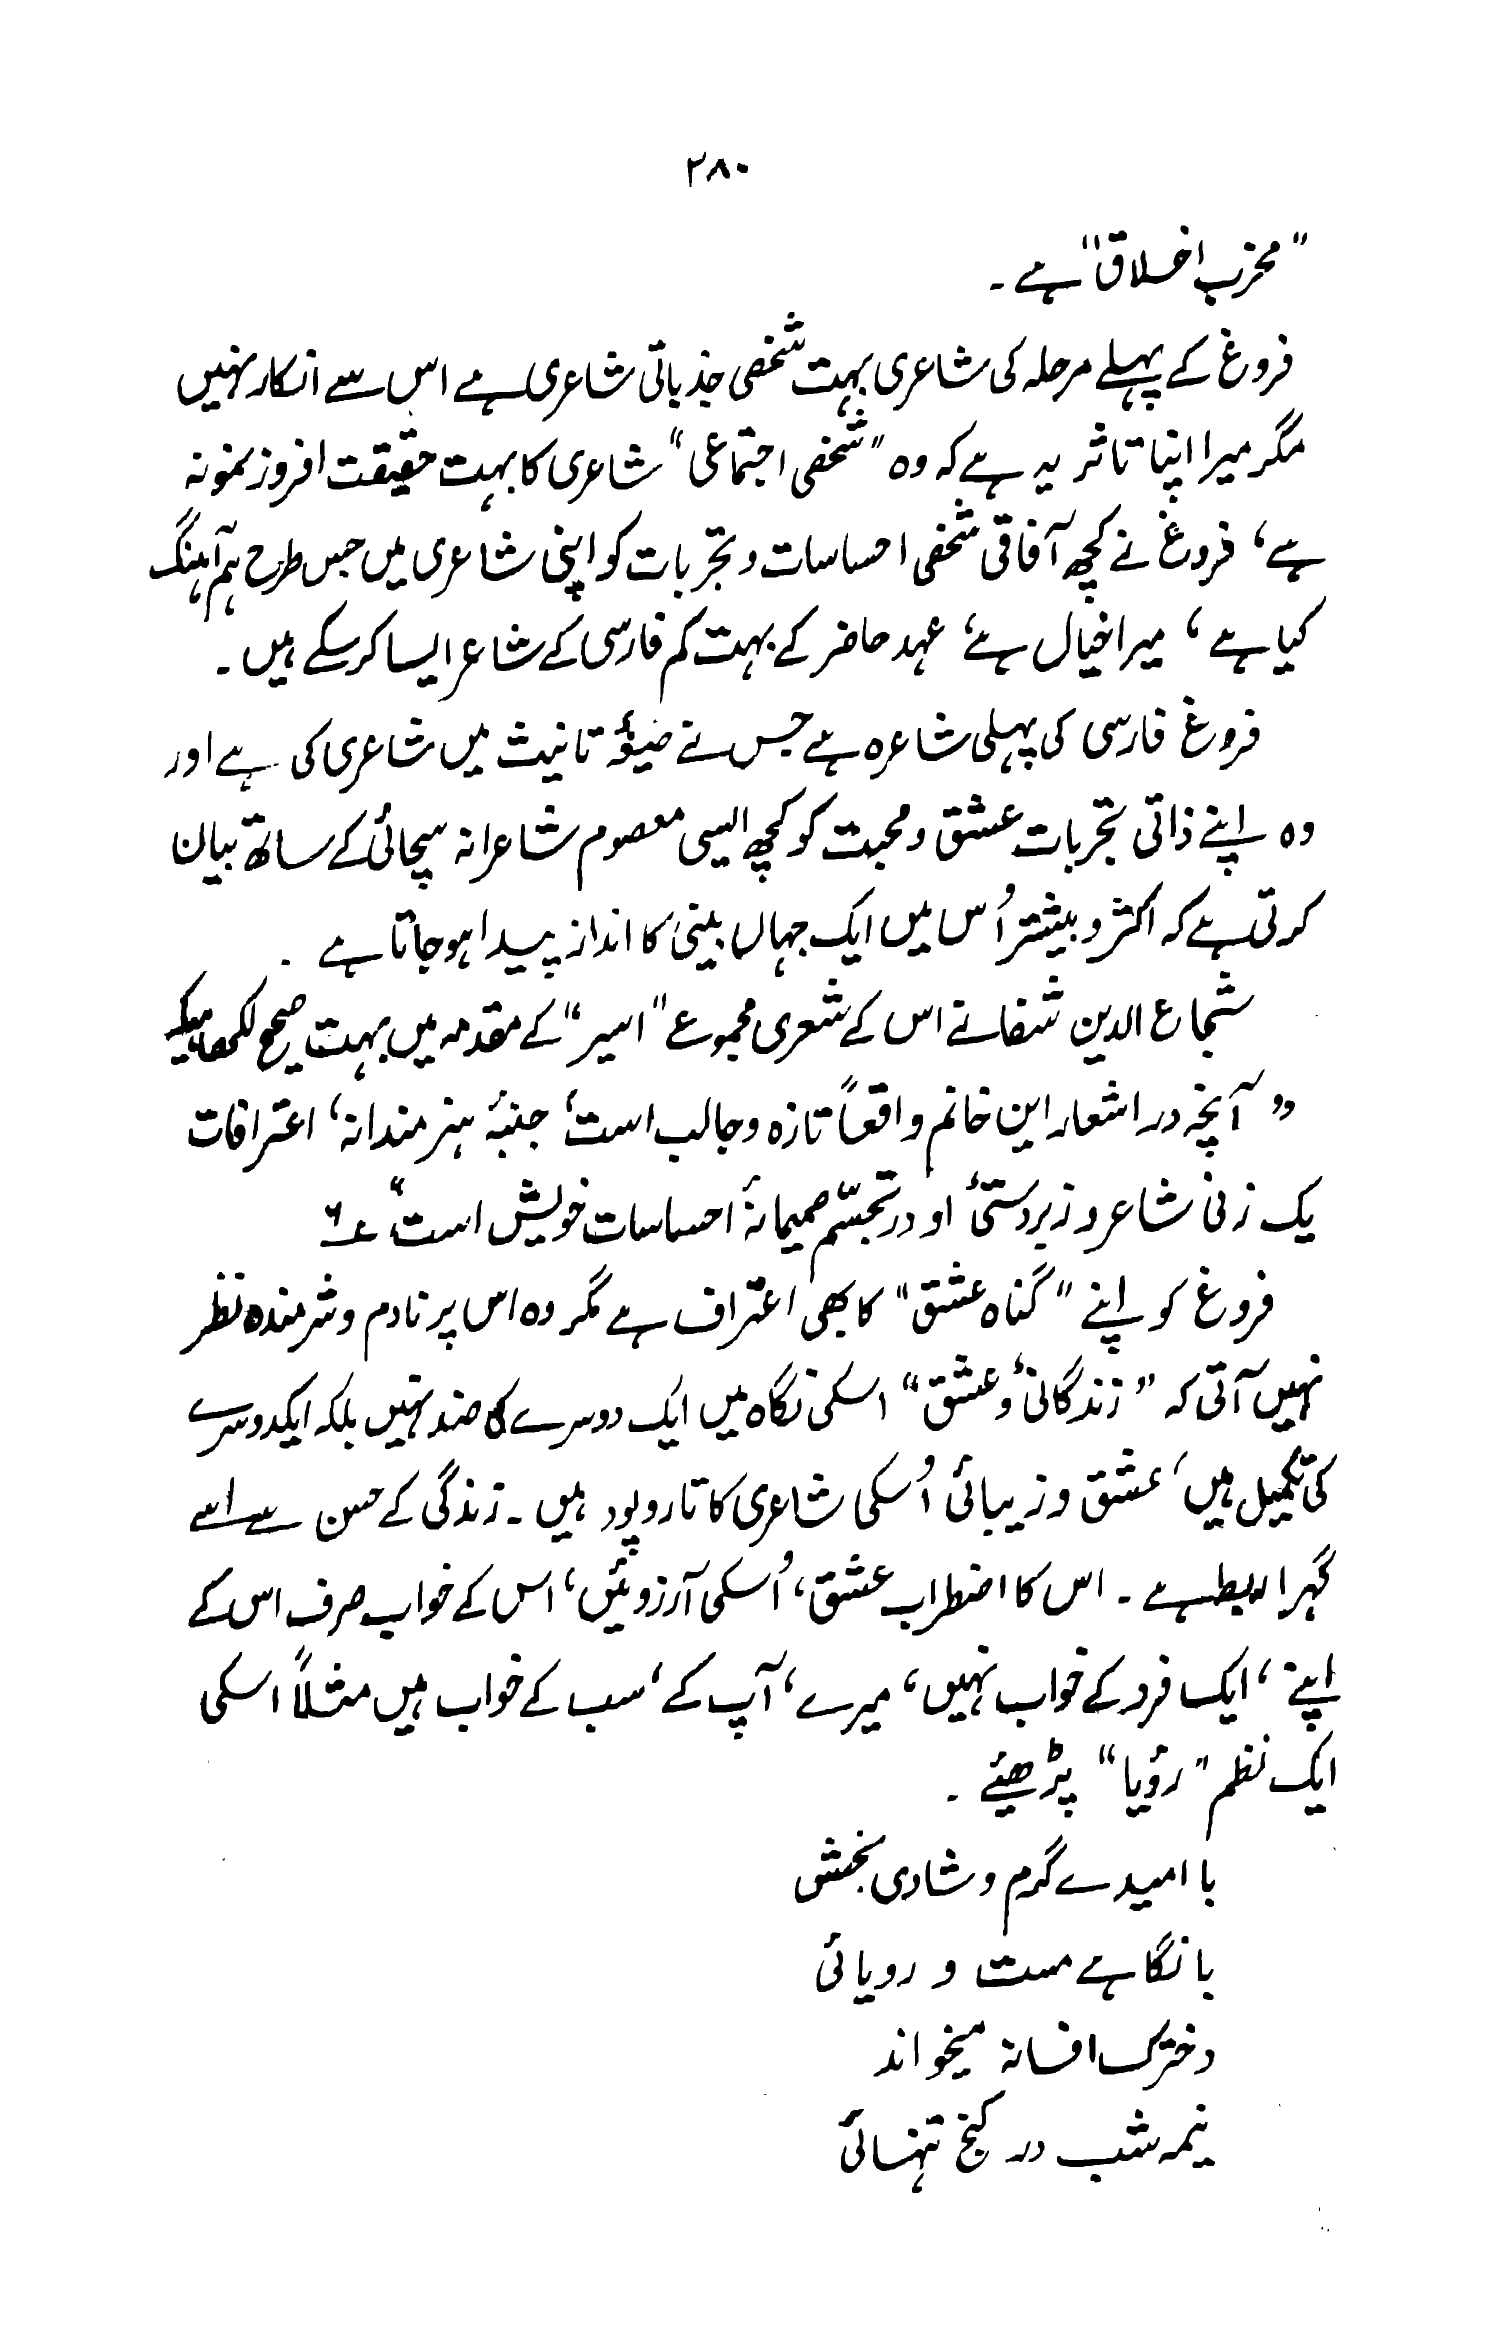 ۲۸۰
"مخرب اخلاق" ہے ۔
فروغ کے پہلے مرحلہ کی شاعری بہت شخصی جذباتی شاعری ہے اس سے انکار نہیں
مگر میرا اپنا تاثر یہ ہے کہ وہ "شخصی اجتماعی" شاعری کا بہت حقیقت افروز نمونہ
ہے، فروغ نے کچھ آفاقی شخصی احساسات و تجربات کو اپنی شاعری میں جس طرح ہم آہنگ
کیا ہے، میرا خیال ہے، عہد حاضر کے بہت کم فارسی کے شاعر ایسا کر سکے ہیں ۔
فروغ فارسی کی پہلی شاعرہ ہے جس نے تانیث میں شاعری کی ہے اور
وہ اپنے ذاتی تجربات عشق و محبت کو کچھ ایسی معصوم شاعرانہ سچائی کے ساتھ بیان
کرتی ہے کہ اکثر و بیشتر اُس میں ایک جہاں بینی کا انداز پیدا ہو جاتا ہے ۔
شجاع الدین شفا نے اس کے شعری مجموعے "اسیر" کے مقدمہ میں بہت صحیح لکھا ہیکہ
"آنچہ در اشعار این خانم واقعاً تازہ و جالب است، جنبۂ ہنر مندانہ، اعترافات
یک زنی شاعر و زبردستیٔ او در تجسّم صمیمانۂ احساسات خویش است" ؏۶
فروغ کو اپنے "گناہ عشق" کا بھی اعتراف ہے مگر وہ اس پر نادم و شرمندہ نظر
نہیں آتی کہ "زندگانیٔ و عشق" اسکی نگاہ میں ایک دوسرے کا ضد نہیں بلکہ ایکدوسرے
کی تکمیل ہیں، عشق و زیبائی اُسکی شاعری کا تار و پود ہیں ۔ زندگی کے حسن سے اسے
گہرا ربط ہے ۔ اس کا اضطراب عشق، اُسکی آرزوئیں، اس کے خواب صرف اس کے
اپنے، ایک فرد کے خواب نہیں، میرے، آپ کے، سب کے خواب ہیں مثلاً اسکی
ایک نظم "رؤیا" پڑھیئے ۔
با امیدے گرم و شادی بخش
با نگاہے مست و رویائی
دخترک افسانہ میخواند
نیمہ شب در کنج تنہائی